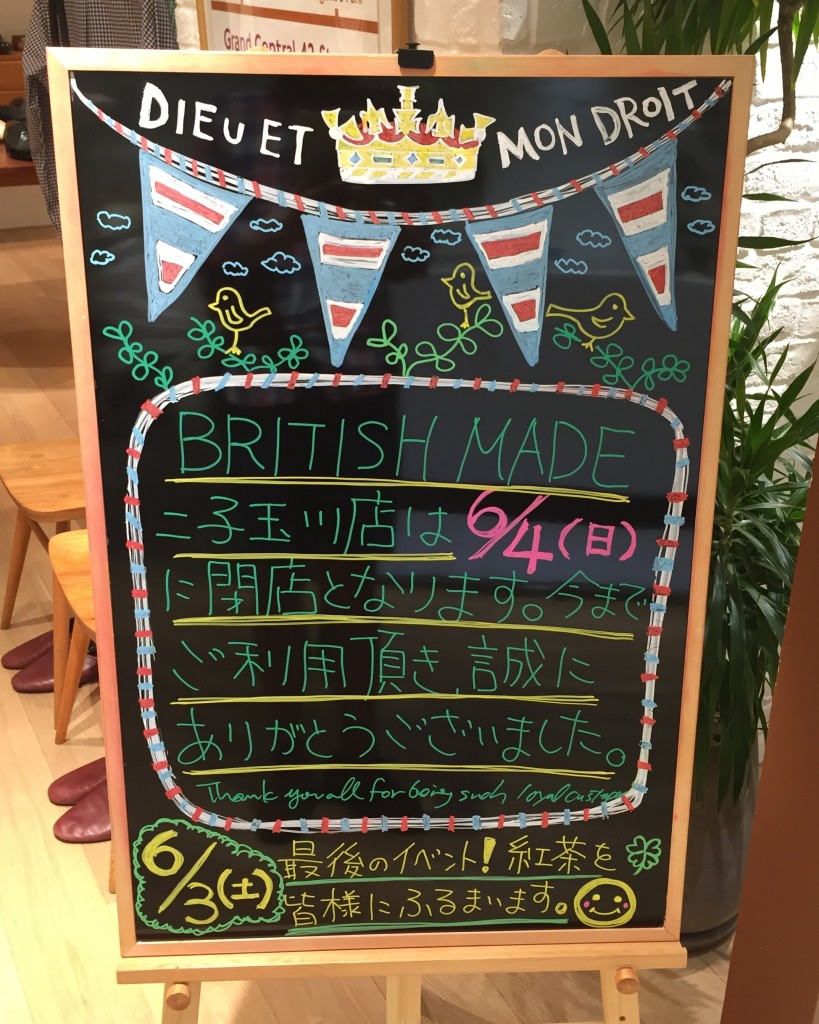 Grand Central 42
DIEU ET MON DROIT
BRITISH MADE
二子玉川店は 6/4(日)
に閉店となります。今まで
ご利用頂き、誠に
ありがとうございました。
Thank you all for being such loyal
6/3(土)
最後のイベント!紅茶を
皆様にふるまいます。